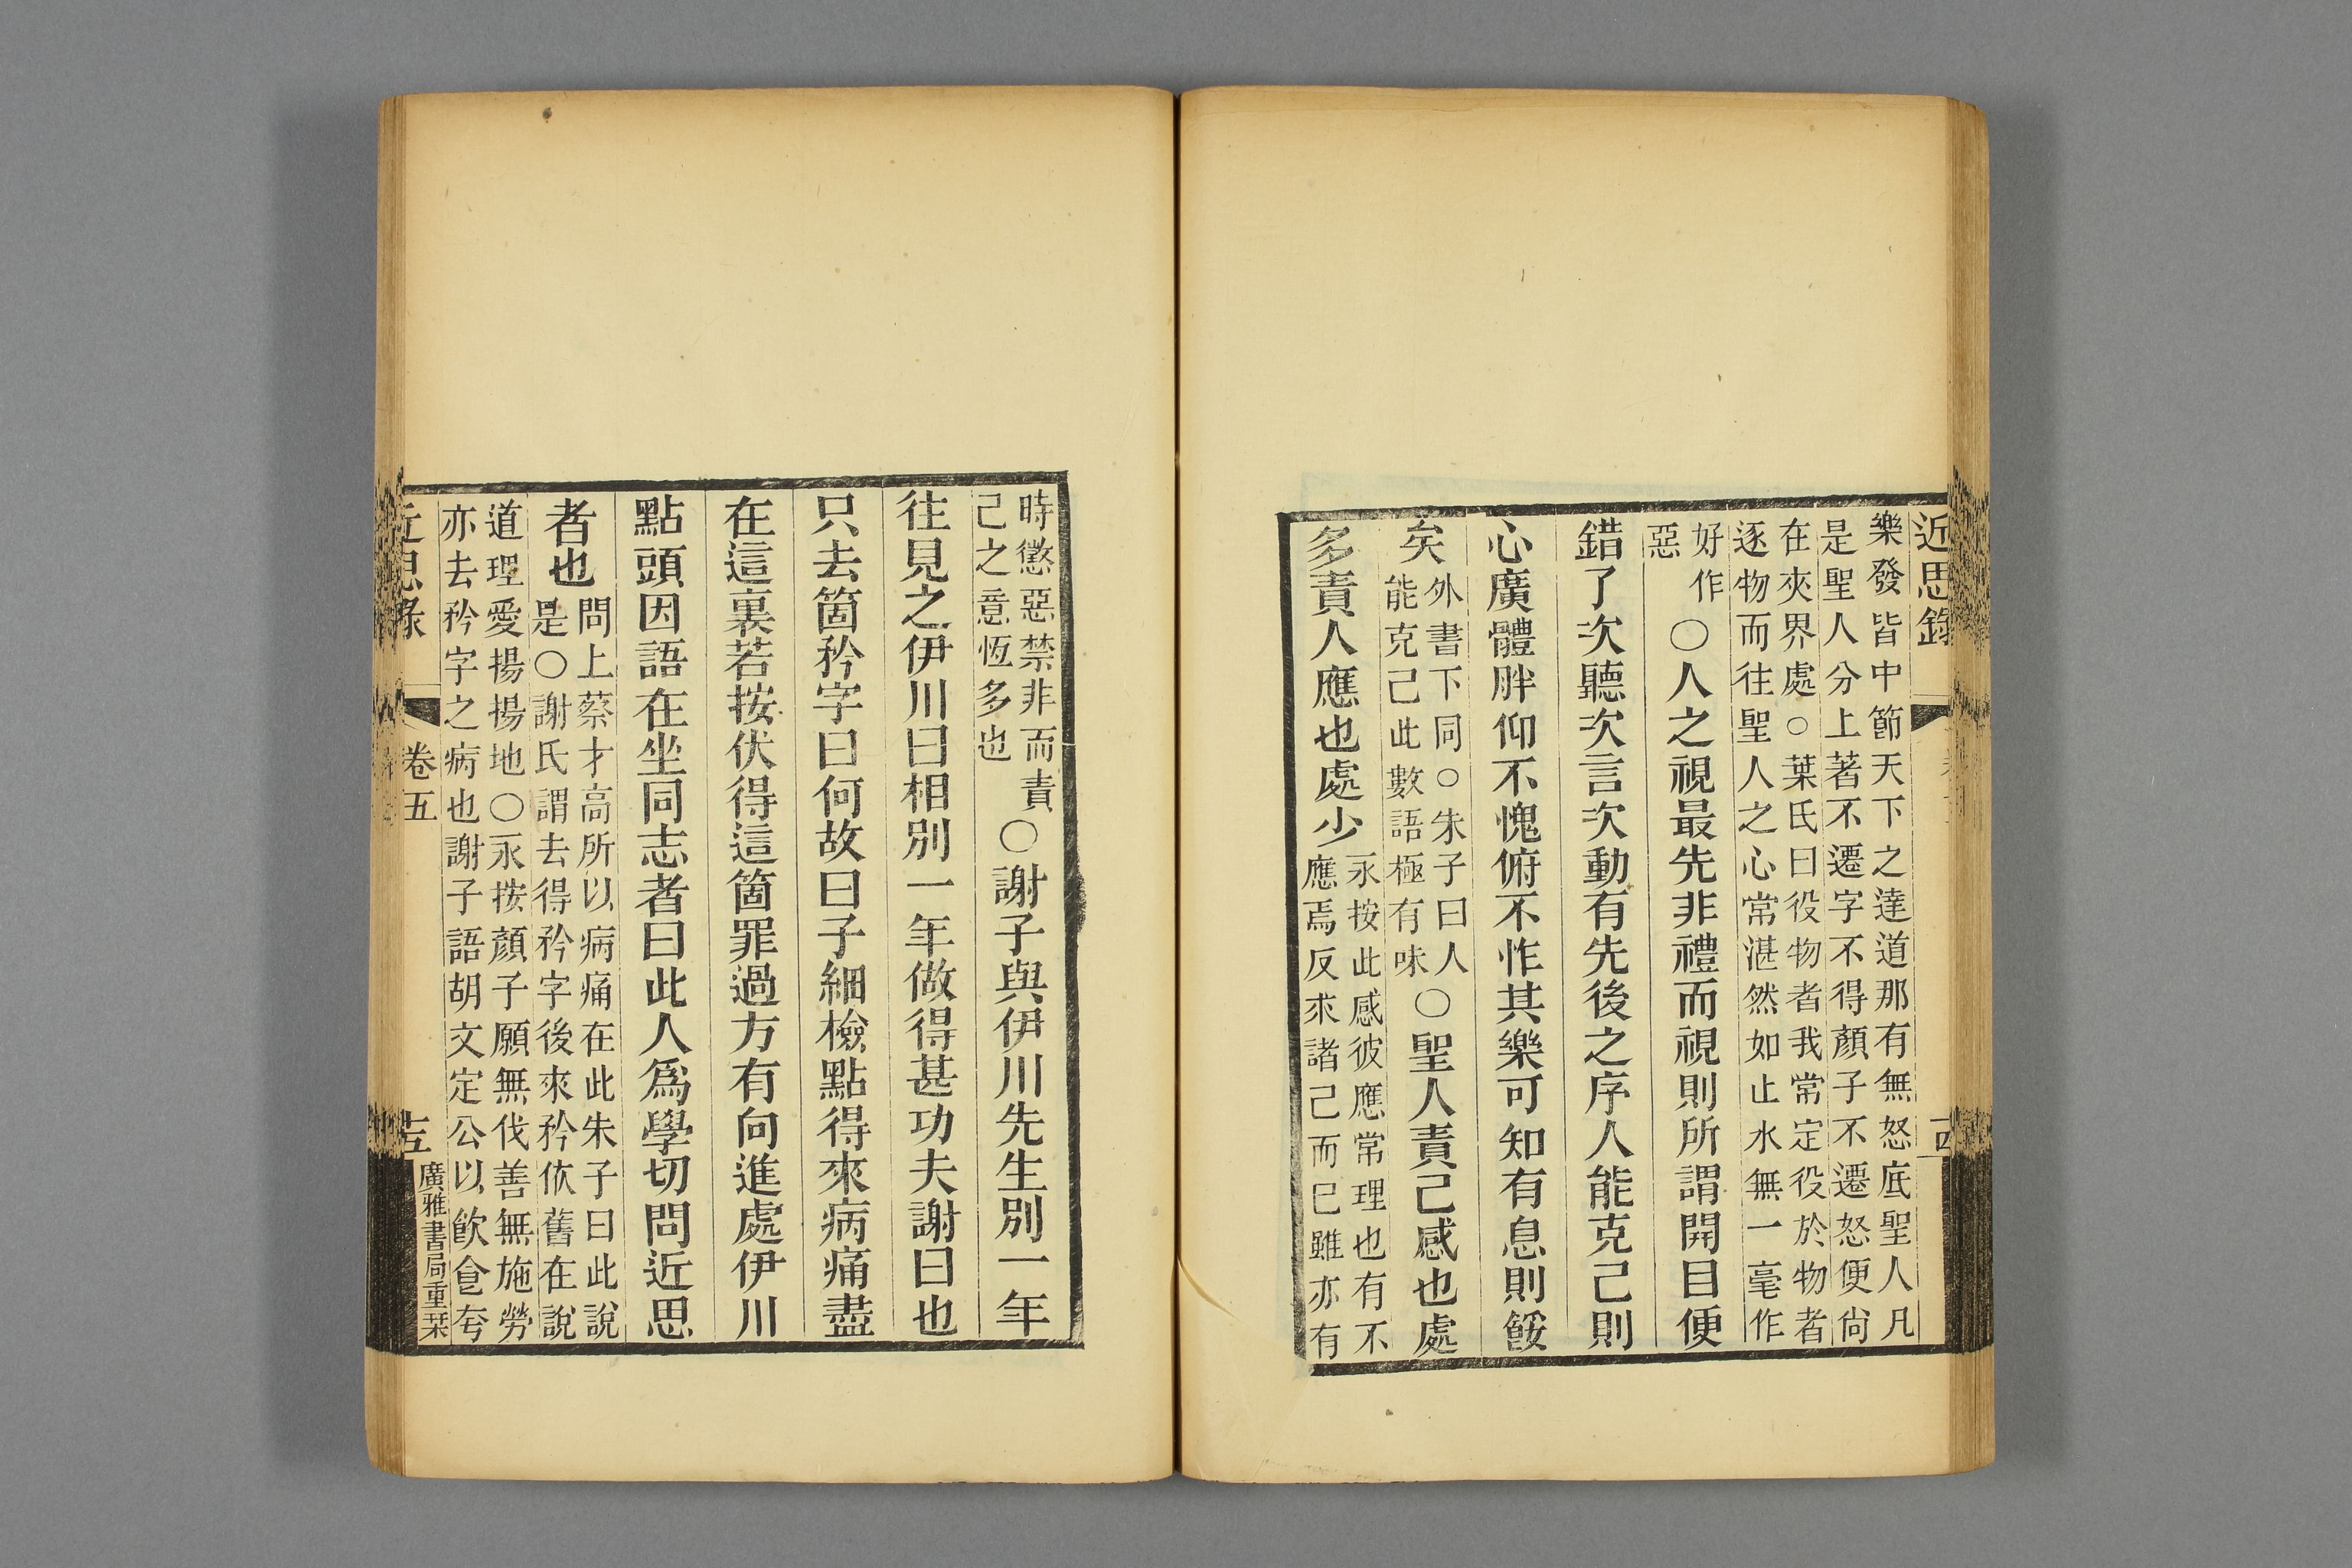 近思錄
樂發皆中節天下之達道那有無怒底聖人凡
是聖人分上著不遷字不得顏子不遷怒便尙
在夾界處○葉氏曰役物者我常定役於物者
逐物而往聖人之心常湛然如止水無一毫作
好作
惡
○人之視最先非禮而視則所謂開目便
錯了次聽次言次動有先後之序人能克己則
心廣體胖仰不愧俯不怍其樂可知有息則餒
矣
外書下同○朱子曰人
能克己此數語極有味
○聖人責己感也處
多責人應也處少
永按此感彼應常理也有不
應焉反求諸己而已雖亦有
時懲惡禁非而責
己之意恆多也
○謝子與伊川先生別一年
往見之伊川曰相別一年做得甚功夫謝曰也
只去箇矜字曰何故曰子細檢點得來病痛盡
在這裏若按伏得這箇罪過方有向進處伊川
點頭因語在坐同志者曰此人爲學切問近思
者也
問上蔡才高所以病痛在此朱子曰此說
是○謝氏謂去得矜字後來矜依舊在說
道理愛揚揚地○永按顏子願無伐善無施勞
亦去矜字之病也謝子語胡文定公以飮食夸
近思錄
卷五
十五
廣雅書局重栞